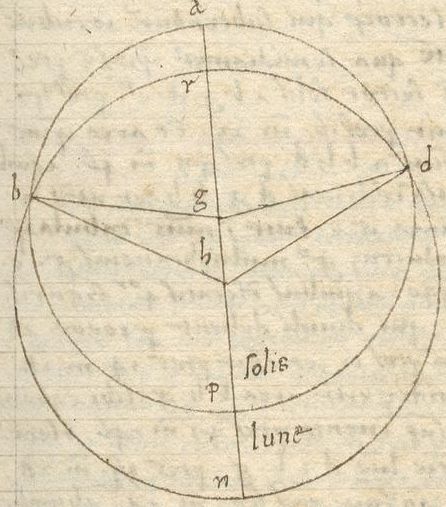 a
r
b
d
g
h
solis
p
lune
n